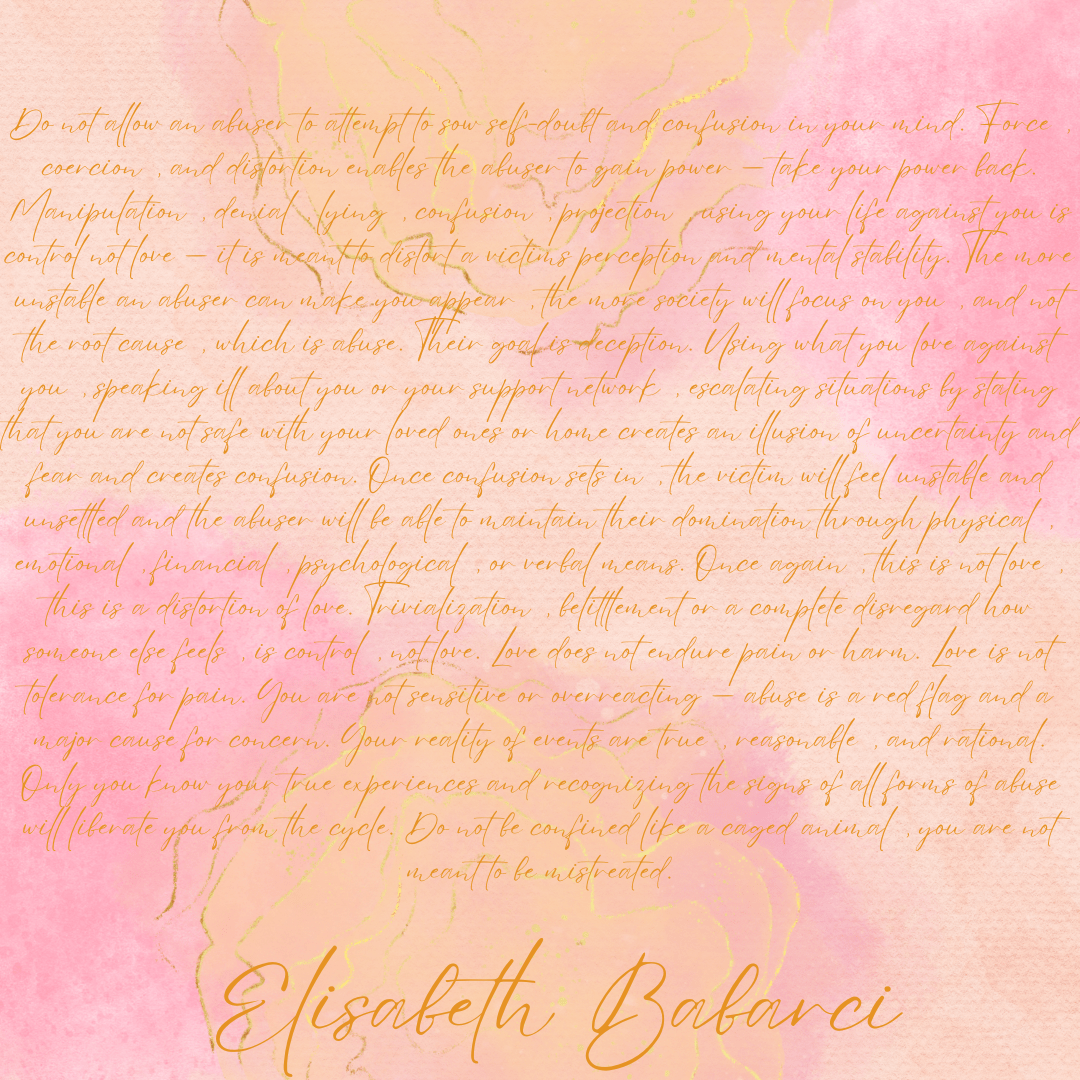 Do not allow an abuser to attempt to sow self-doubt and confusion in your mind. Force ,
coercion , and distortion enables the abuser to gain power – take your power back.
Manipulation , denial , lying , confusion , projection , using your life against you is
control not love – it is meant to distort a victims perception and mental stability. The more
unstable an abuser can make you appear , the more society will focus on you , and not
the root cause , which is abuse. Their goal is deception. Using what you love against
you , speaking ill about you or your support network , escalating situations by stating
that you are not safe with your loved ones or home creates an illusion of uncertainty and
fear and creates confusion. Once confusion sets in , the victim will feel unstable and
unsettled and the abuser will be able to maintain their domination through physical ,
emotional , financial , psychological , or verbal means. Once again , this is not love ,
this is a distortion of love. Trivialization , belittlement or a complete disregard how
someone else feels , is control , not love. Love does not endure pain or harm. Love is not
tolerance for pain. You are not sensitive or overreacting – abuse is a red flag and a
major cause for concern. Your reality of events are true , reasonable , and rational.
Only you know your true experiences and recognizing the signs of all forms of abuse
will liberate you from the cycle. Do not be confined like a caged animal , you are not
meant to be mistreated.
Elisabeth Babarci